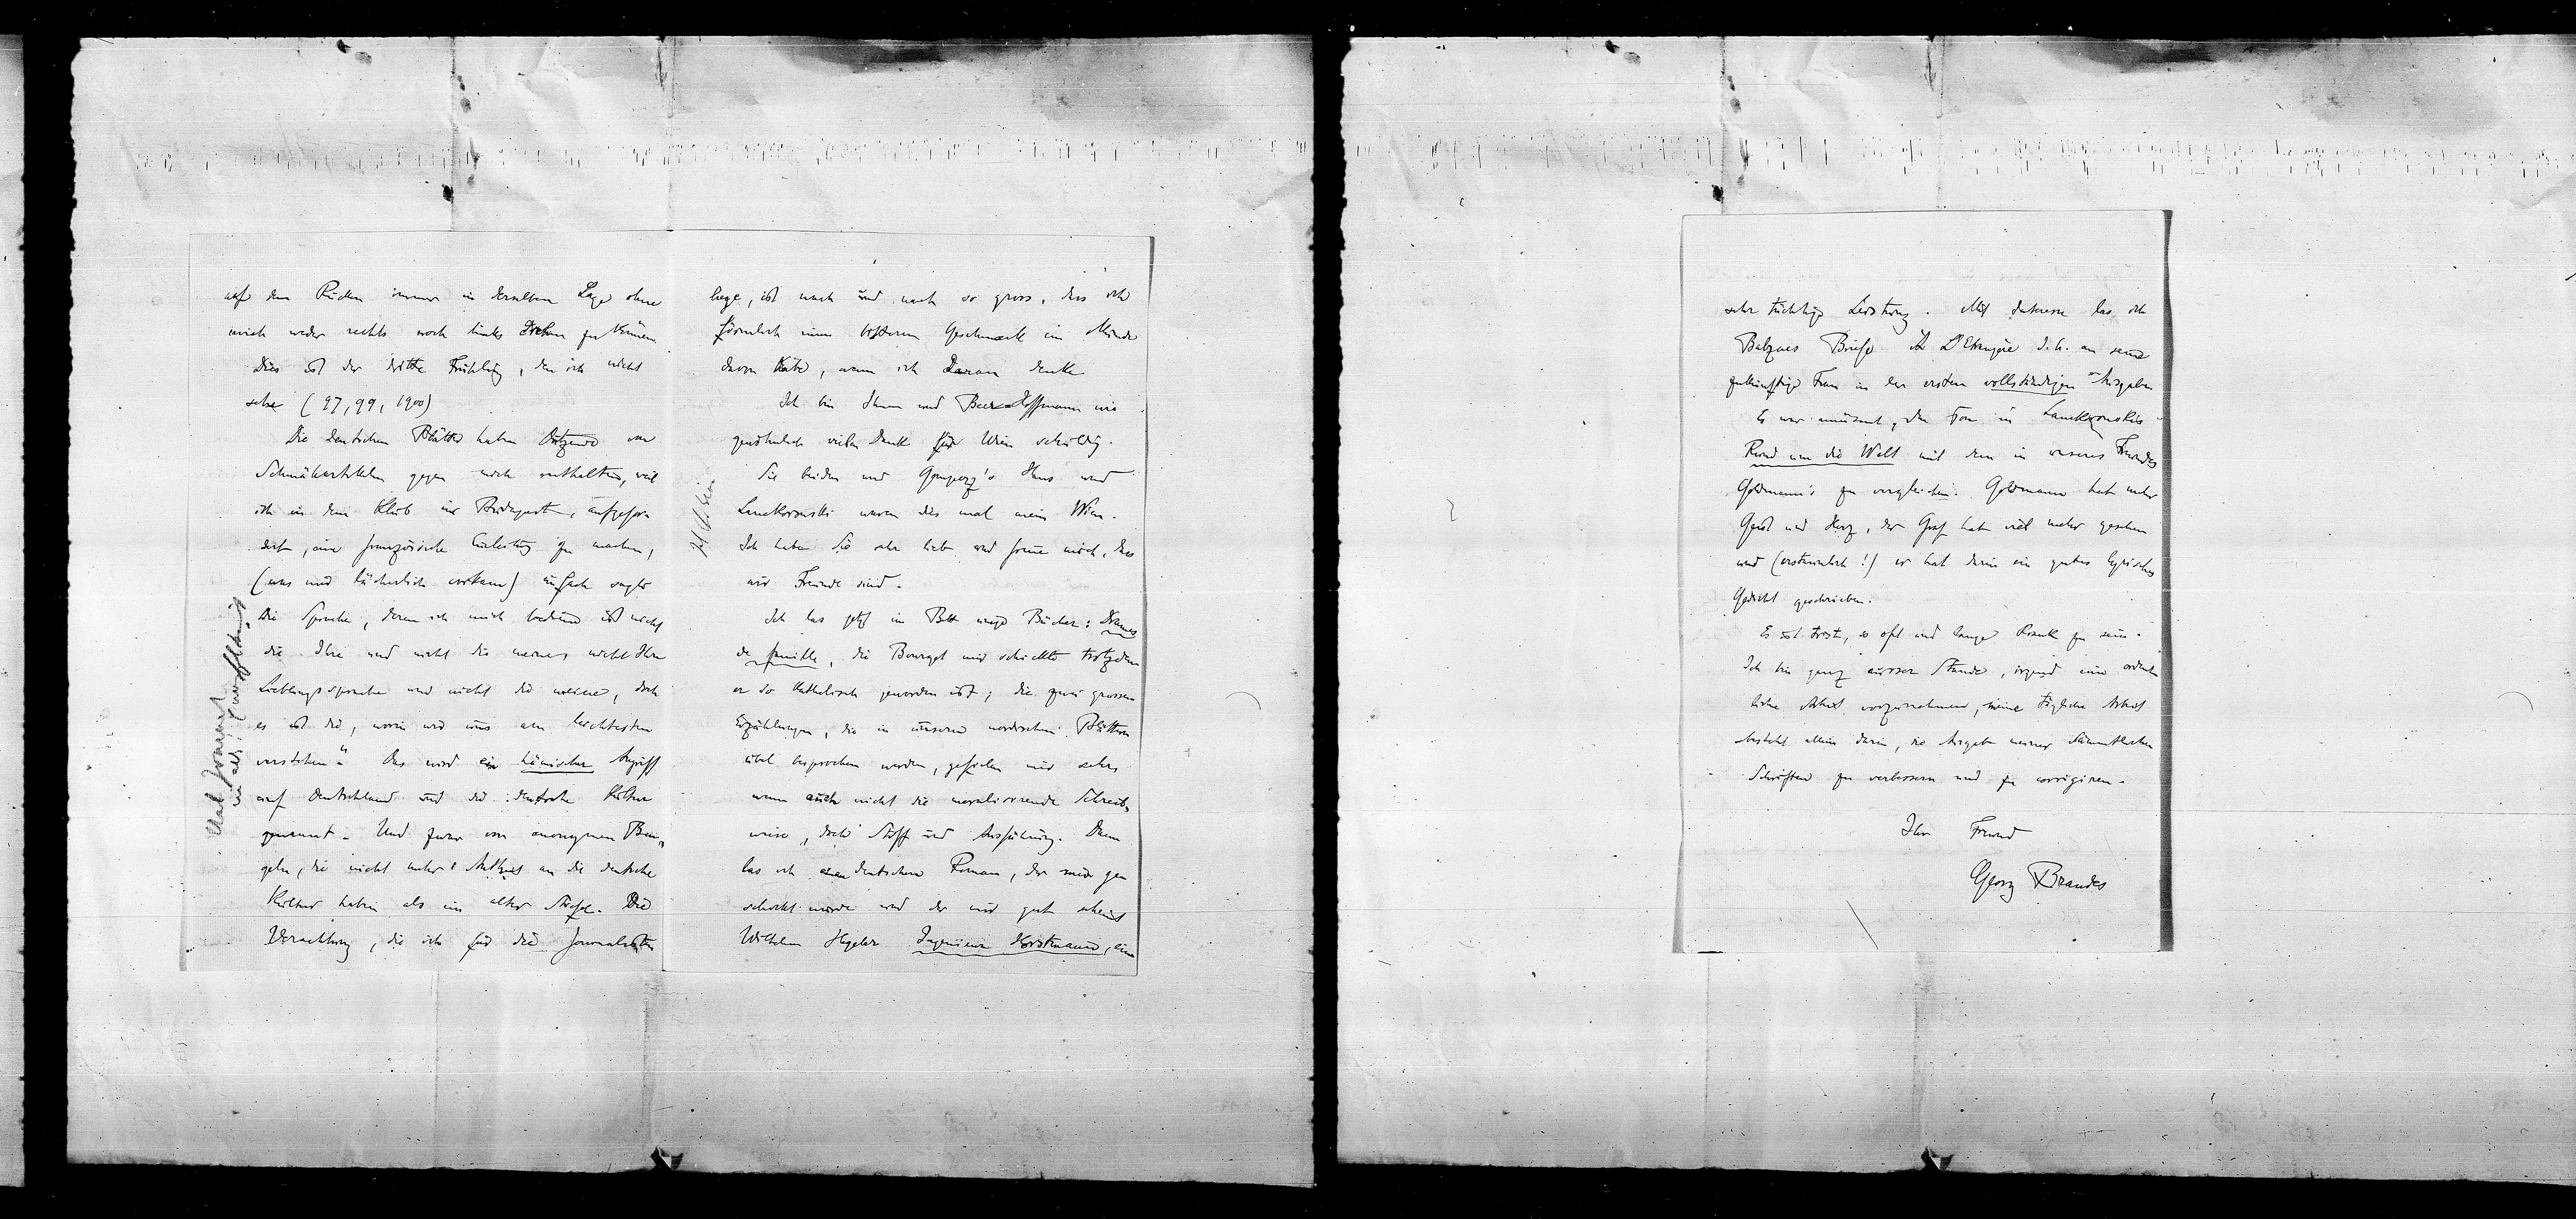 auf dem Rücken immer in derselben Lage ohne
mich weder rechts noch links drehen zu können.
Dies ist der dritte Frühling, den ich nicht
sehe (97, 99, 1900)
Die deutschen Blätter haben Dutzende von
Schmähartikeln gegen mich enthalten, weil
ich in dem Klub in Budapest, aufgefor-
dert, eine französische Einleitung zu machen,
(was mir lächerlich vorkam) einfach sagte
„Die Sprache, deren ich mich bediene ist nicht
die Ihre und nicht die meine, nicht Ihre
Lieblingssprache und nicht die meine, doch
es ist die, worin wir uns am leichtesten
verstehen“. Das wird ein hämischer Angriff
auf Deutschland und die deutsche Kultur
genannt. Und zwar von anonymen Ben-
geln, die nicht mehr Antheil an die deutsche
Kultur haben als ein alter Stiefel. Die
Verachtung, die ich für die Journalisten
hege, ist nach und nach so gross, dass ich
förmlich einen bitteren Geschmack im Munde
davon habe, wenn ich daran denke
Ich bin Ihnen und Beer-Hoffmann wie
gewöhnlich vielen Dank für Wien schuldig.
Sie beiden und Gomperz's Haus und
Lanckoronski waren dies mal mein Wien.
Ich habe Sie sehr lieb und freue mich, dass
wir Freunde sind.
Ich las jetzt im Bett einige Bücher: Drames
de famille, die Bourget mir schickte trotzdem
er so katholisch geworden ist; die zwei grossen
Erzählungen, die in unseren nordischen Blättern
übel besprochen werden, gefielen mir sehr,
wenn auch nicht die moralisirende Schreib-
weise, doch Stoff und Ausführung. Dann
las ich einen deutschen Roman, der mir ge-
schickt wurde und der mir gut scheint
Wilhelm Hegeler Ingenieur Horstmann, eine
sehr tüchtige Leistung. Mit Interesse las ich
Balzacs Briefe A L'Etrangère d.h. an seine
zukünftige Frau in der ersten vollständigen Ausgabe
Es war amüsant, den Ton in Lanckoronskis
Rund um die Welt mit dem in unseres Freundes
Goldmann's zu vergleichen. Goldmann hat mehr
Geist und Herz, der Graf hat viel mehr gesehen
und (erstaunlich!) er hat darin ein gutes lyrisches
Gedicht geschrieben.
Es ist trist, so oft und lange krank zu sein.
Ich bin ganz ausser Stande, irgend eine ordent-
liche Arbeit vorzunehmen, meine tägliche Arbeit
besteht allein darin, die Ausgabe meiner sämmtlichen
Schriften zu verbessern und zu corrigiren.
Ihr Freund
Georg Brandes